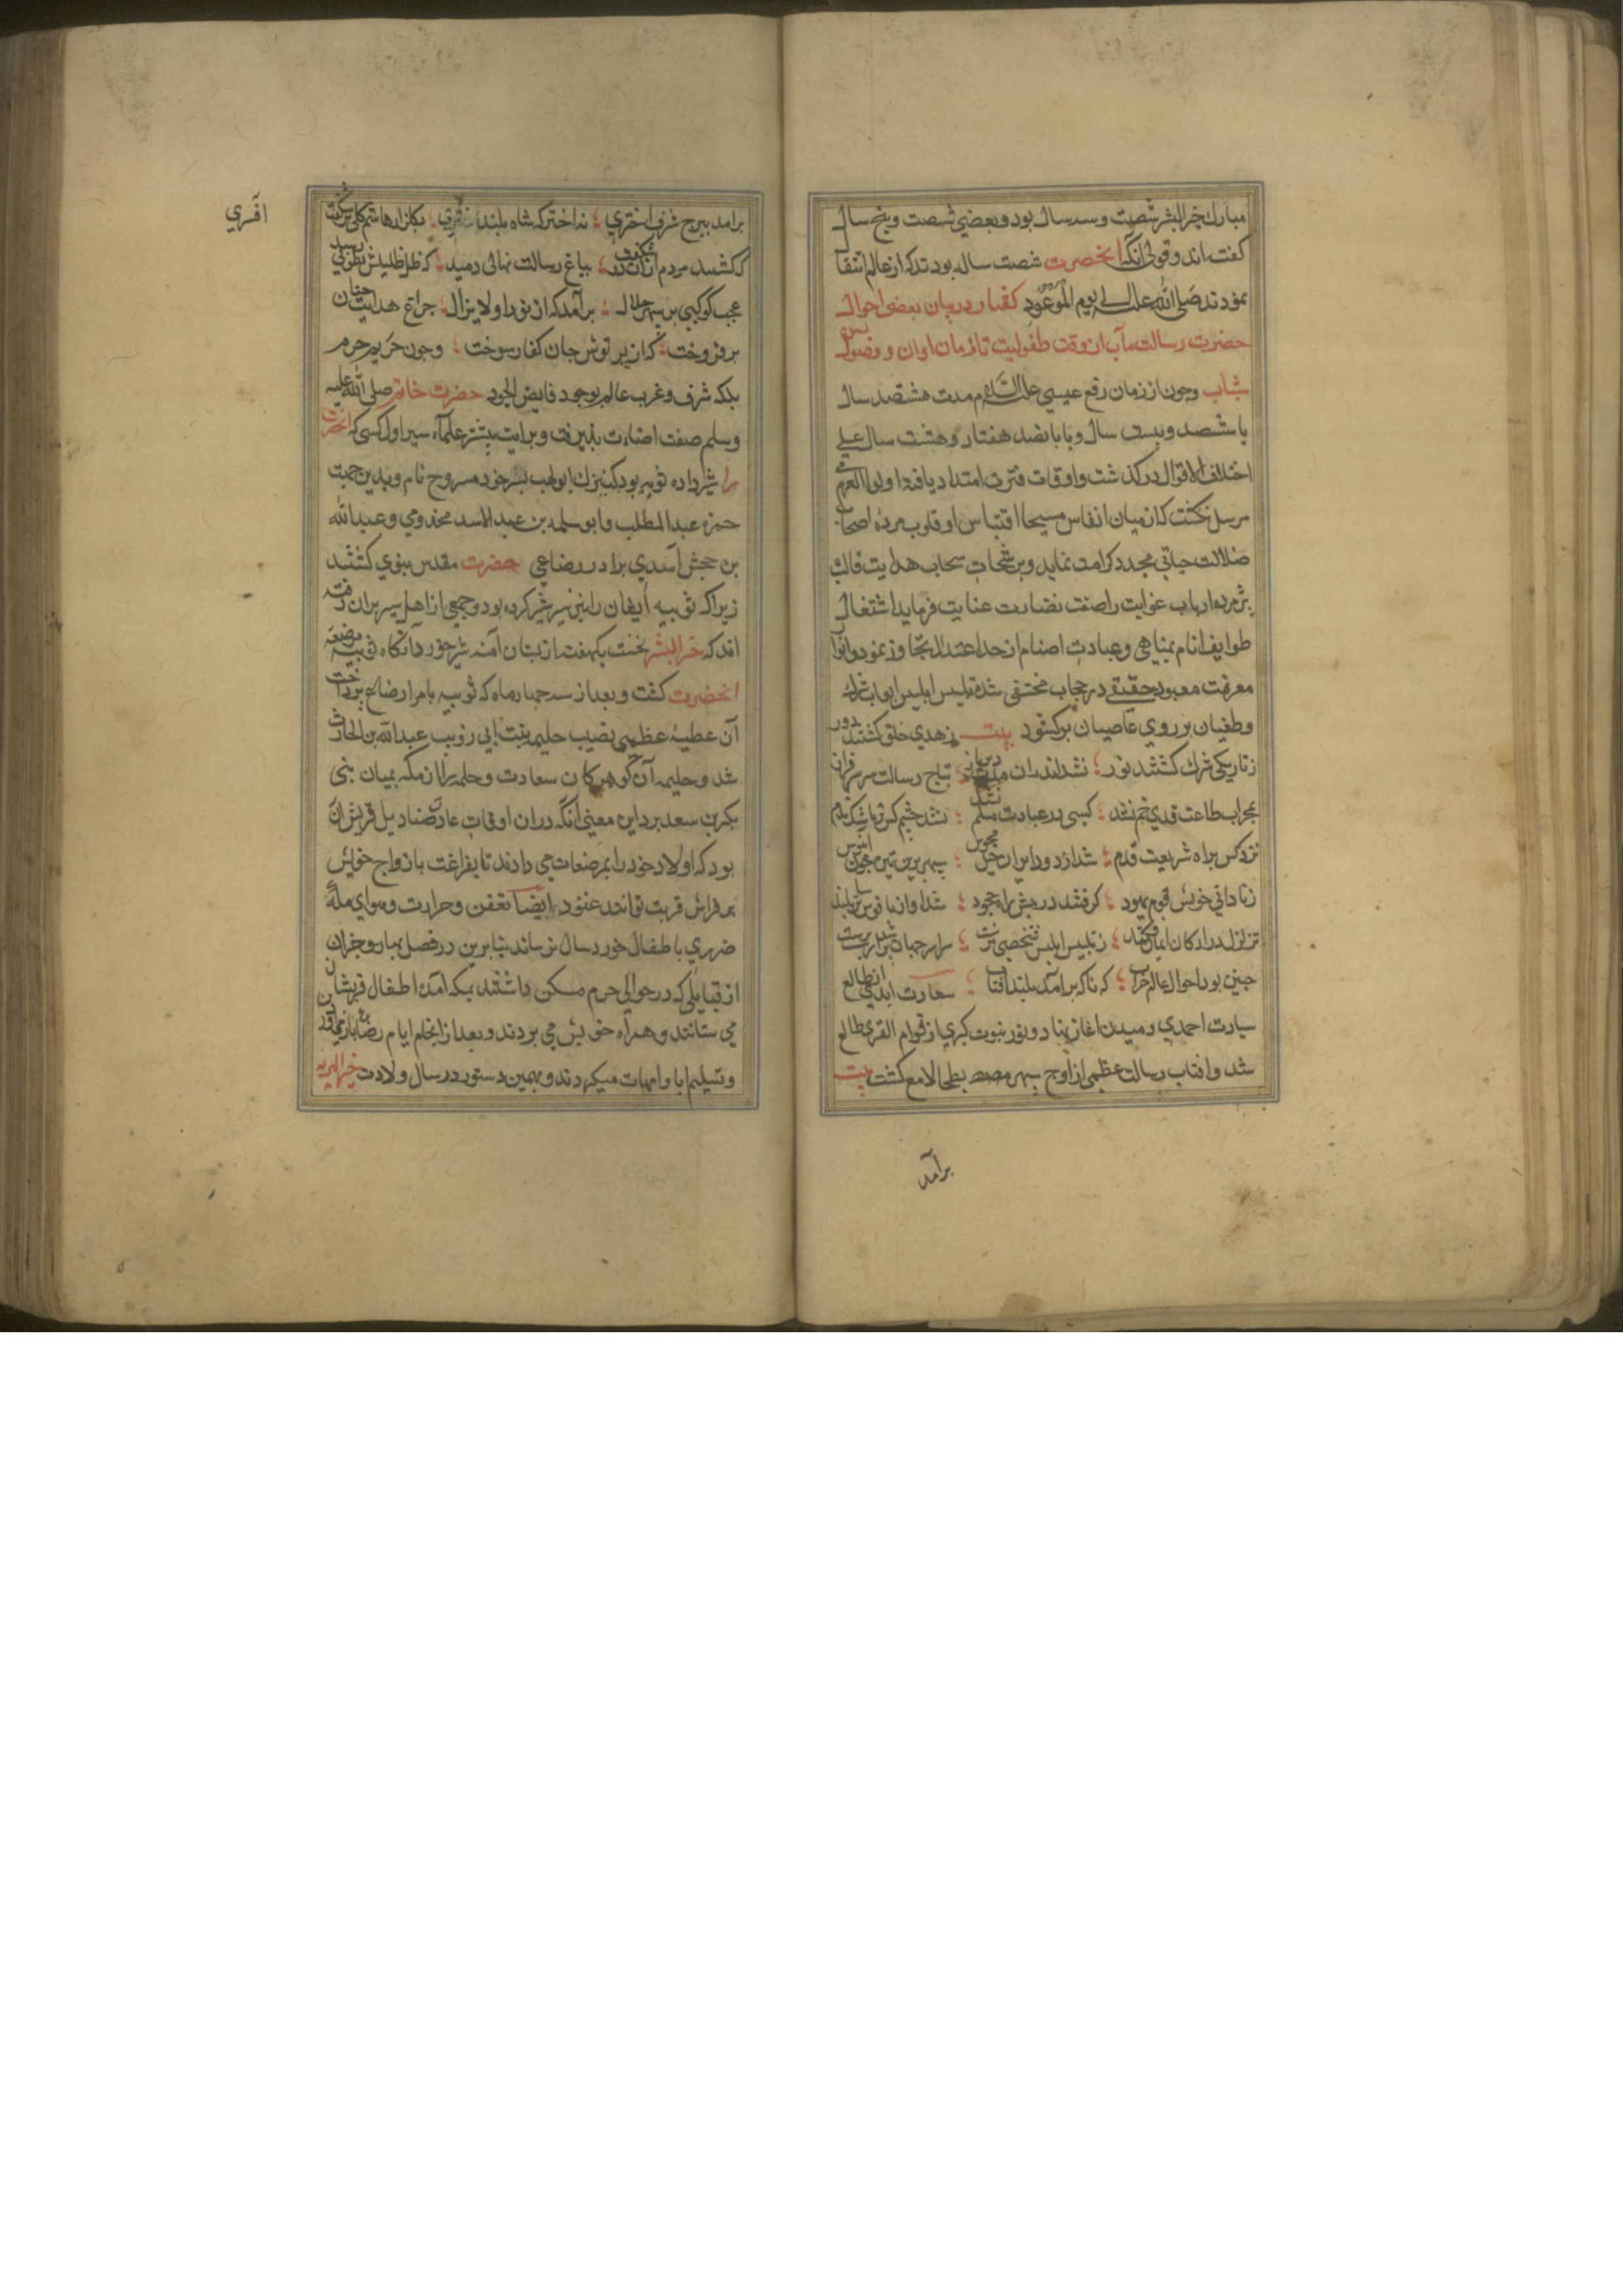 مبارك خير البشر شصت وسه سال بود و بعضي شصت وپنج سال
كفته اند وقولى انكه انحضرت شصت ساله بودند كه از عالم انتقال
نمودند صلى الله عليه الى يوم الموعود كفتار در بيان بعضى احوال
حضرت رسالت مآب از وقت طفوليت تا زمان اوان و وصول بسن
شباب وچون از زمان رفع عيسى عليه السلام مدت هشتصد سال
يا ششصد وبيست سال ويا پانصد هفتاد وهشت سال على
اختلاف الاقوال در كذشت واوقات فترت امتداد يافته اولوا العزمى
مرسل نكشت كه از ميان انفاس مسيحا اقتباس او قلوب مرده اصحاب
ضلالت حياتى مجدد كرامت نمايد وبرشحات سحاب هدايت قالب
پژمرده ارباب غوايت را صفت نضارت عنايت فرمايد اشتغال
طوايف انام بمناهى وعبادت اصنام از حد اعتدال تجاوز نمود وانوار
معرفت معبود حقيقى در حجاب مختفى شده تلبيس ابليس ابواب شرك
وطغيان بر روى عاصيان بركشود بيت زهدى خلق كشتند دور
ز تاريكى شرك كشتند نور ؛ نشد اندران دير بتاج رسالت سر سرفراز
بمحراب طاعت قدى خم نشد ؛ كسى در عبادت مسلم نشد ؛ نشد چشم كس تر باشك ندم
نزد كس براه شريعت قدم ؛ شد از دود ايران خيل مجوس ؛ سپهر برين تيره چون ابنوس
ز نادانى خويش قوم يهود ؛ كرفتند در پيش راه جحود ؛ شد اواز ناقوس ترسا بلند
تزلزل در اركان ايمان فكند ؛ ز تلبيس ابليس شخصى نرست ؛ سراسر جهان شد پر از بت پرست
چنين بود احوال عالم خراب ؛ كه ناكه برامد بلند افتاب ؛ سعادت ابدى از مطالع
سيادت احمدى دميدن اغاز نهاد و نور نبوت كبرى از قوام القرى طالع
شد وافتاب رسالت عظمى از اوج سپهر بطحا لامع كشت بيت
برآمد
برامد ببرج شرف اخترى ؛ نه اختر كه شاه بلند ؛ بكلزار هاشم كلى بر شكفت
كه كشتند مردم ازان در شكفت ؛ بباغ رسالت نهالى دميد ؛ كه ظل ظليلش بطوبى رسيد
عجب كوكبى بر سپهر جلال ؛ برآمد كه از نور او لايزال ؛ چراغ هدايت چنان
بر فروخت ؛ كه از پرتوش جان كفار سوخت ؛ وچون حريم حرم
بلكه شرق وغرب عالم بوجود فايض الجود حضرت خاتم صلى الله عليه
وسلم صفت اضاءت پذيرفت وبرايت بيشتر علماء سير اول كسى كه انحضرت
را شير داده ثويبه بود كنيزك ابو لهب بشير خود مسروح نام وبدين جهت
حمزه عبد المطلب وابو سلمه بن عبد الاسد مخذومى وعبد الله
بن جحش اسدى برادر رضاعى حضرت مقدس نبوى كشتند
زيرا كه ثويبه ايشان را نيز شير كرده بود وجمعى از اهل سير بران رفته
اند كه خير البشر نخست يكهفته از پستان آمنه شير خورد آنكاه ثويبه مرضعه
انحضرت كشت و بعد از سه چهار ماه كه ثويبه بامر ارضاع پرداخت
آن عطيه عظمى نصيب حليمه بنت ابى ذويب عبد الله بن الحارث
شد وحليمه آن كوهر كان سعادت وحلم را از مكه بميان بنى
بكر بن سعد برد اين معنى آنكه دران اوقات عادت صناديد قريش آن
بود كه اولاد خود را بمرضعات مى دادند تا بفراغت بازواج خويش
بر فراش قربت توانند غنود ايضا تعفن وحرارت وهواى مكه
ضررى باطفال خورد سال نرساند بنابرين در فصل بهار وخزان زنان
از قبايلى كه در حوالى حرم مسكن داشتند بمكه آمده اطفال قريش از ايشان
مى ستانند وهمراه خويش مى بردند و بعد از انجام ايام رضاع باز مى آورد
وتسليم ابا وامهات ميكردند وبهمين دستور در سال ولادت خير البريه
افسرى